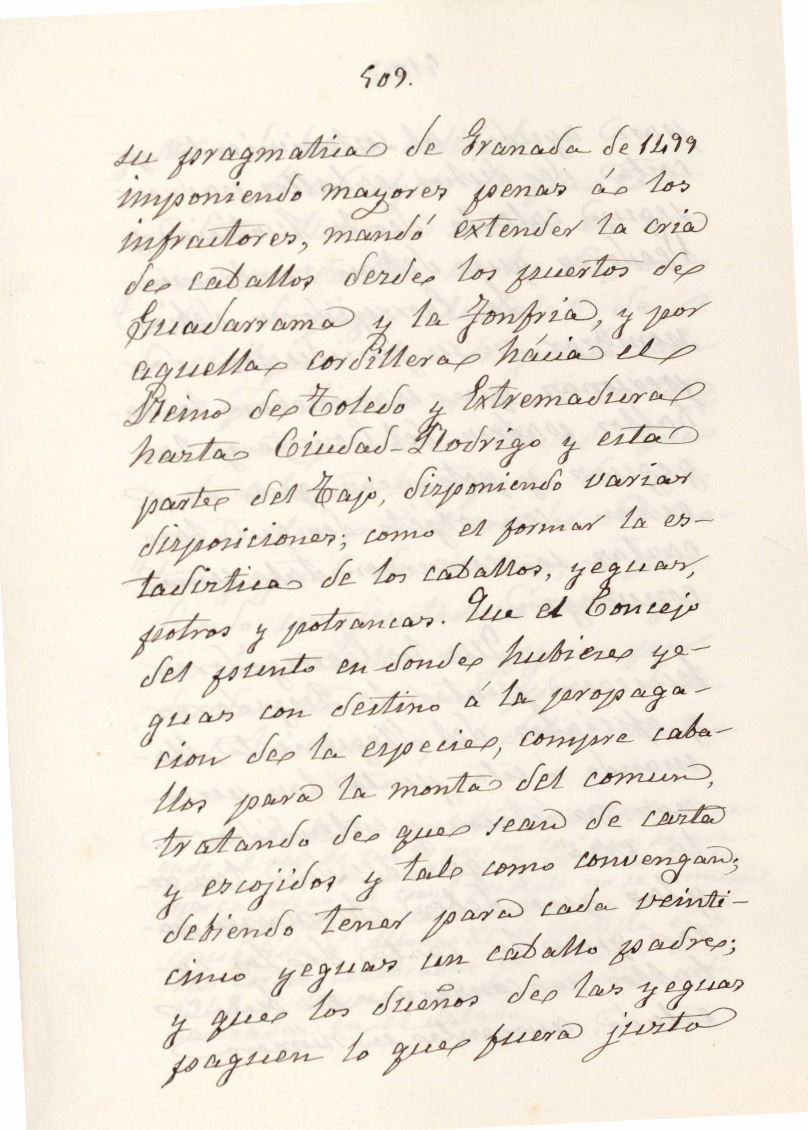 509.
su pragmatica de Granada de 1499
imponiendo mayores penas á los
infractores, mandó extender la cria
de caballos desde los puertos de
Guadarrama y la Fonfria, y por
aquella cordillera hácia el
Reino de Toledo y Extremadura
hasta Ciudad-Rodrigo y esta
parte del Tajo, disponiendo varias
disposiciones; como el formar la es-
tadistica de los caballos, yeguas,
potros y potrancas. Que el Concejo
del punto en donde hubiere ye-
guas con destino á la propaga-
cion de la especie, compre caba-
llos para la monta del comun,
tratando de que sean de casta
y escojidos y tal como convengan;
debiendo tener para cada veinti-
cinco yeguas un caballo padre;
y que los dueños de las yeguas
paguen lo que fuera justo